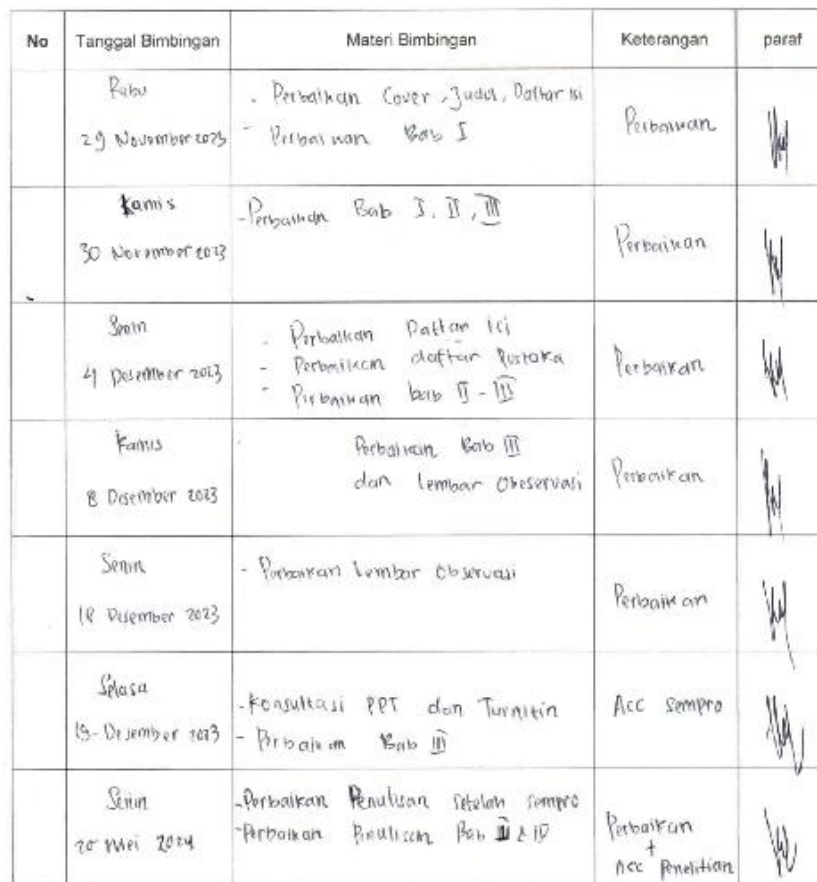 No Tanggal Bimbingan Materi Bimbingan Keterangan paraf
Rabu
29 November 2023
- Perbaikan Cover, Judul, Daftar isi
- Perbaikan Bab I
Perbaikan
Kamis
30 November 2023
- Perbaikan Bab I, II, III
Perbaikan
Senin
4 Desember 2023
- Perbaikan Daftar isi
- Perbaikan daftar Pustaka
- Perbaikan bab II - III
Perbaikan
Kamis
8 Desember 2023
Perbaikan Bab III
dan lembar Obeservasi
Perbaikan
Senin
18 Desember 2023
- Perbaikan lembar Observasi
Perbaikan
Selasa
19-Desember 2023
- Konsultasi PPT dan Turnitin
- Perbaikan Bab III
Acc sempro
Senin
20 Mei 2024
- Perbaikan Penulisan setelah sempro
- Perbaikan Penulisan Bab & IV
Perbaikan
+
Acc Penelitian